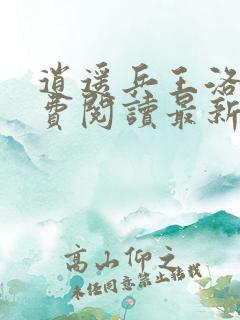 逍遥兵王洛
費閱讀最新
高山仰之
未经同意禁止转载